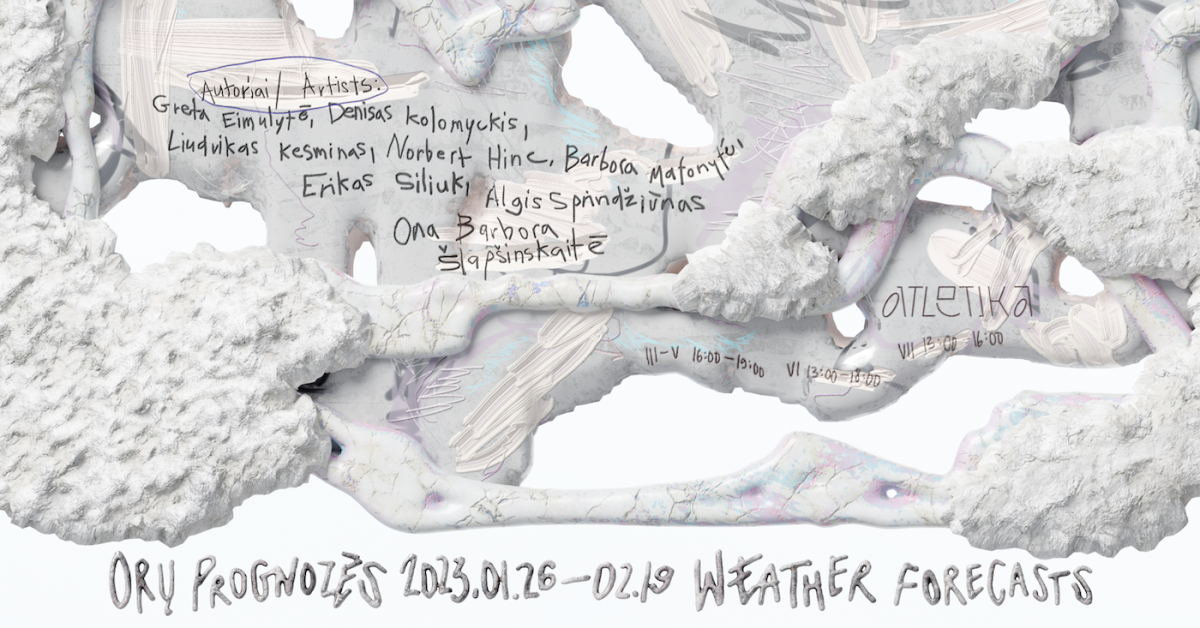 Autoriai/ Artists:
Greta Eimulytė, Denisas Kolomyckis,
Liudvikas Kesminas, Norbert Hinc, Barbora Matonytė,
Erikas Siliuk, Algis Sprindžiūnas
Ona Barbora
Šlapšinskaitė
aTLeTIKa
III-V 16:00-19:00 VI 13:00-18:00 VII 13:00-16:00
ORŲ PROGNOZĖS 2023.01.26-02.19 WEATHER FORECASTS